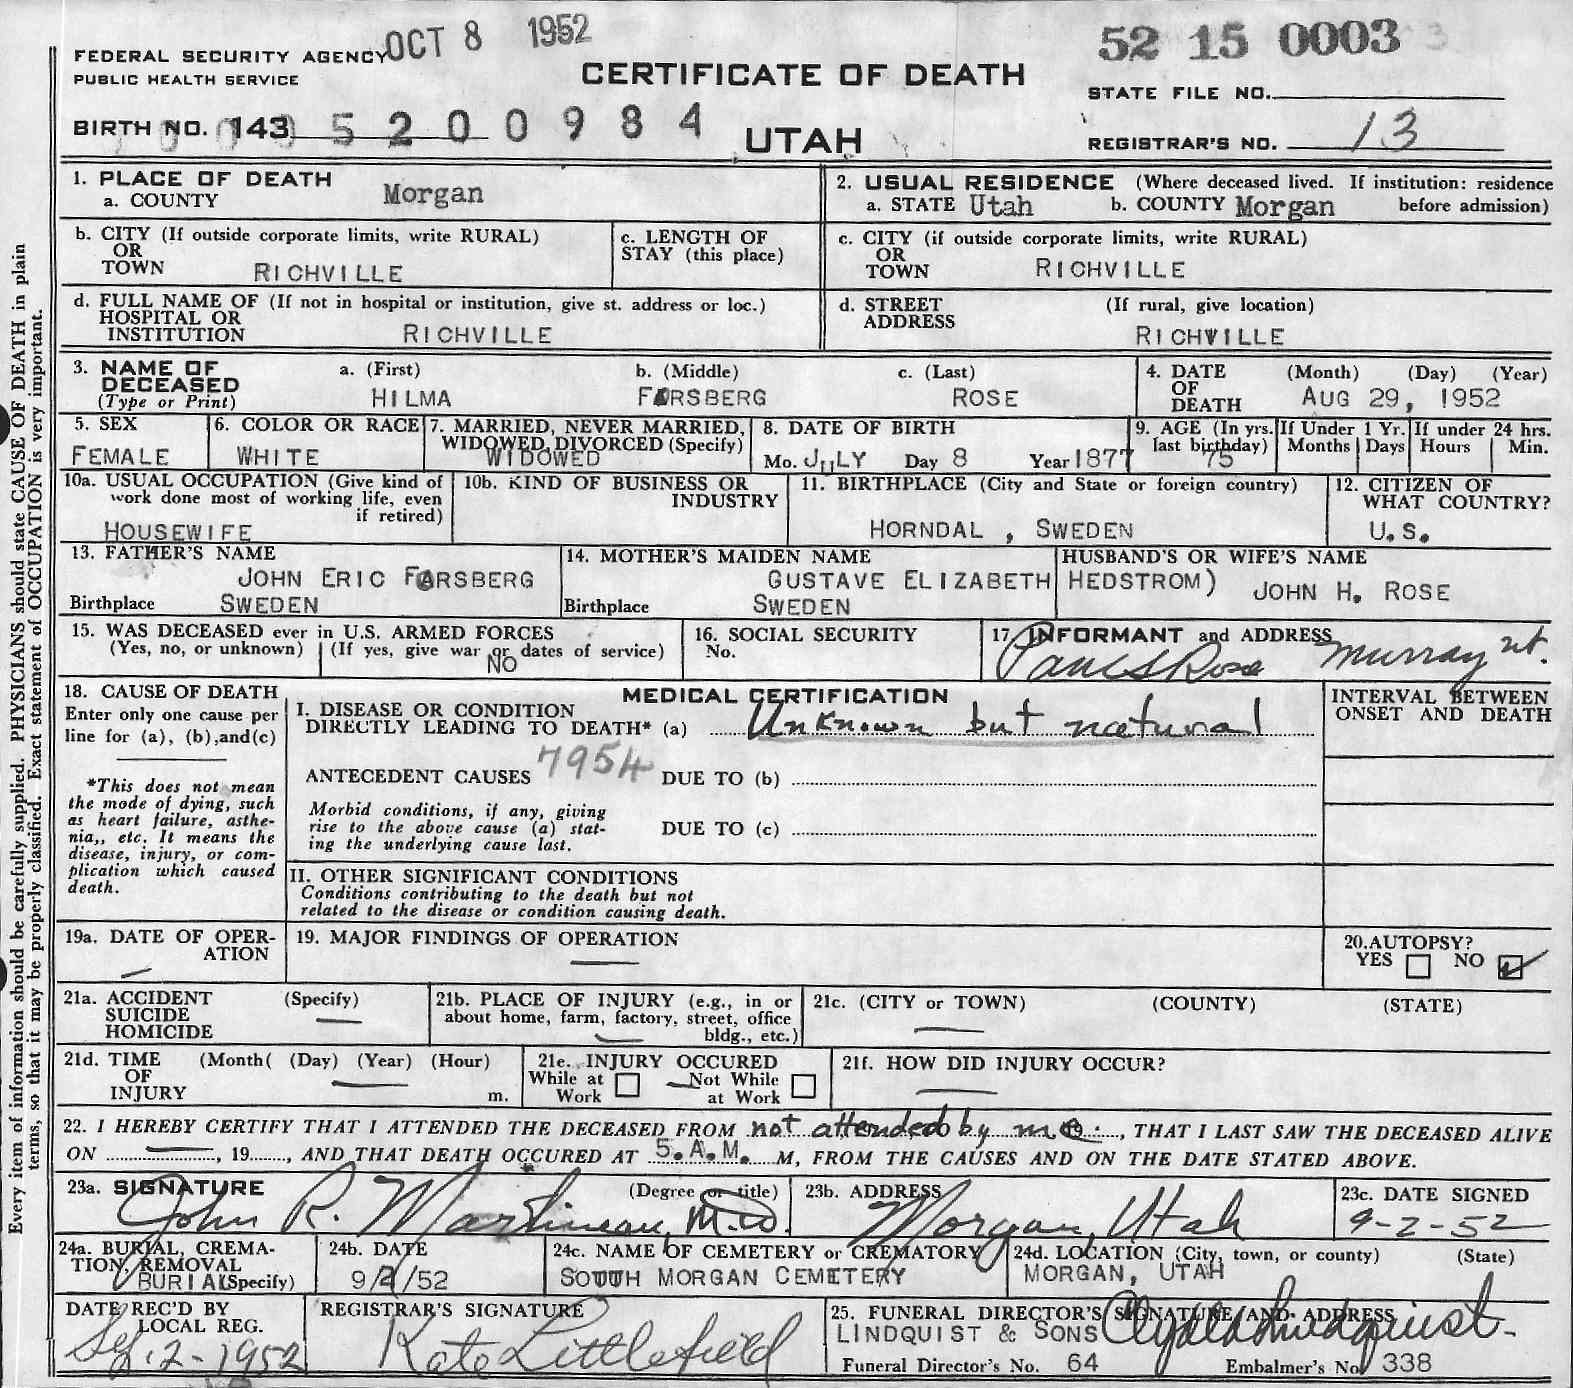 OCT 8 1952
52 15 0003
FEDERAL SECURITY AGENCY
PUBLIC HEALTH SERVICE
CERTIFICATE OF DEATH
STATE FILE NO.
BIRTH NO. 143 5 2 0 0 9 8 4
UTAH
REGISTRAR'S NO. 13
1. PLACE OF DEATH
a. COUNTY Morgan
2. USUAL RESIDENCE (Where deceased lived. If institution: residence
a. STATE Utah b. COUNTY Morgan before admission)
b. CITY (If outside corporate limits, write RURAL)
OR
TOWN RICHVILLE
c. LENGTH OF
STAY (this place)
c. CITY (if outside corporate limits, write RURAL)
OR
TOWN RICHVILLE
d. FULL NAME OF (If not in hospital or institution, give st. address or loc.)
HOSPITAL OR
INSTITUTION RICHVILLE
d. STREET (If rural, give location)
ADDRESS
RICHVILLE
3. NAME OF DECEASED
(Type or Print)
a. (First) b. (Middle) c. (Last)
HILMA FORSBERG ROSE
4. DATE OF DEATH (Month) (Day) (Year)
AUG 29, 1952
5. SEX
FEMALE
6. COLOR OR RACE
WHITE
7. MARRIED, NEVER MARRIED,
WIDOWED, DIVORCED (Specify)
WIDOWED
8. DATE OF BIRTH
Mo. JULY Day 8 Year 1877
9. AGE (In yrs. last birthday)
75
If Under 1 Yr.
Months Days
If under 24 hrs.
Hours Min.
10a. USUAL OCCUPATION (Give kind of
work done most of working life, even
if retired)
HOUSEWIFE
10b. KIND OF BUSINESS OR
INDUSTRY
11. BIRTHPLACE (City and State or foreign country)
HORNDAL , SWEDEN
12. CITIZEN OF
WHAT COUNTRY?
U.S.
13. FATHER'S NAME
JOHN ERIC FORSBERG
Birthplace SWEDEN
14. MOTHER'S MAIDEN NAME
GUSTAVE ELIZABETH HEDSTROM)
Birthplace SWEDEN
HUSBAND'S OR WIFE'S NAME
JOHN H. ROSE
15. WAS DECEASED ever in U.S. ARMED FORCES
(Yes, no, or unknown) (If yes, give war or dates of service)
NO
16. SOCIAL SECURITY
No.
17. INFORMANT and ADDRESS
Rose Murray Ut.
18. CAUSE OF DEATH
Enter only one cause per
line for (a), (b), and (c)
*This does not mean
the mode of dying, such
as heart failure, asthe-
nia,, etc. It means the
disease, injury, or com-
plication which caused
death.
MEDICAL CERTIFICATION
I. DISEASE OR CONDITION
DIRECTLY LEADING TO DEATH* (a) Unknown but natural
ANTECEDENT CAUSES 7954 DUE TO (b)
Morbid conditions, if any, giving
rise to the above cause (a) stat-
ing the underlying cause last.
DUE TO (c)
II. OTHER SIGNIFICANT CONDITIONS
Conditions contributing to the death but not
related to the disease or condition causing death.
INTERVAL BETWEEN
ONSET AND DEATH
19a. DATE OF OPER-
ATION
19. MAJOR FINDINGS OF OPERATION
20. AUTOPSY?
YES NO
21a. ACCIDENT (Specify)
SUICIDE
HOMICIDE
21b. PLACE OF INJURY (e.g., in or
about home, farm, factory, street, office
bldg., etc.)
21c. (CITY or TOWN) (COUNTY) (STATE)
21d. TIME (Month( (Day) (Year) (Hour)
OF
INJURY m.
21e. INJURY OCCURED
While at Work Not While at Work
21f. HOW DID INJURY OCCUR?
22. I HEREBY CERTIFY THAT I ATTENDED THE DECEASED FROM not attended by me, THAT I LAST SAW THE DECEASED ALIVE
ON , 19 , AND THAT DEATH OCCURED AT 5.A.M. M, FROM THE CAUSES AND ON THE DATE STATED ABOVE.
23a. SIGNATURE (Degree or title)
John R. Martineau, M.D.
23b. ADDRESS
Morgan, Utah
23c. DATE SIGNED
9-2-52
24a. BURIAL, CREMA-
TION, REMOVAL
BURIAL (Specify)
24b. DATE
9/2/52
24c. NAME OF CEMETERY or CREMATORY
SOUTH MORGAN CEMETERY
24d. LOCATION (City, town, or county) (State)
MORGAN, UTAH
DATE REC'D BY
LOCAL REG.
Sep. 2-1952
REGISTRAR'S SIGNATURE
Kate Littlefield
25. FUNERAL DIRECTOR'S SIGNATURE AND ADDRESS
LINDQUIST & SONS Clyde Lindquist
Funeral Director's No. 64 Embalmer's No. 338
Every item of information should be carefully supplied. PHYSICIANS should state CAUSE OF DEATH in plain
terms, so that it may be properly classified. Exact statement of OCCUPATION is very important.